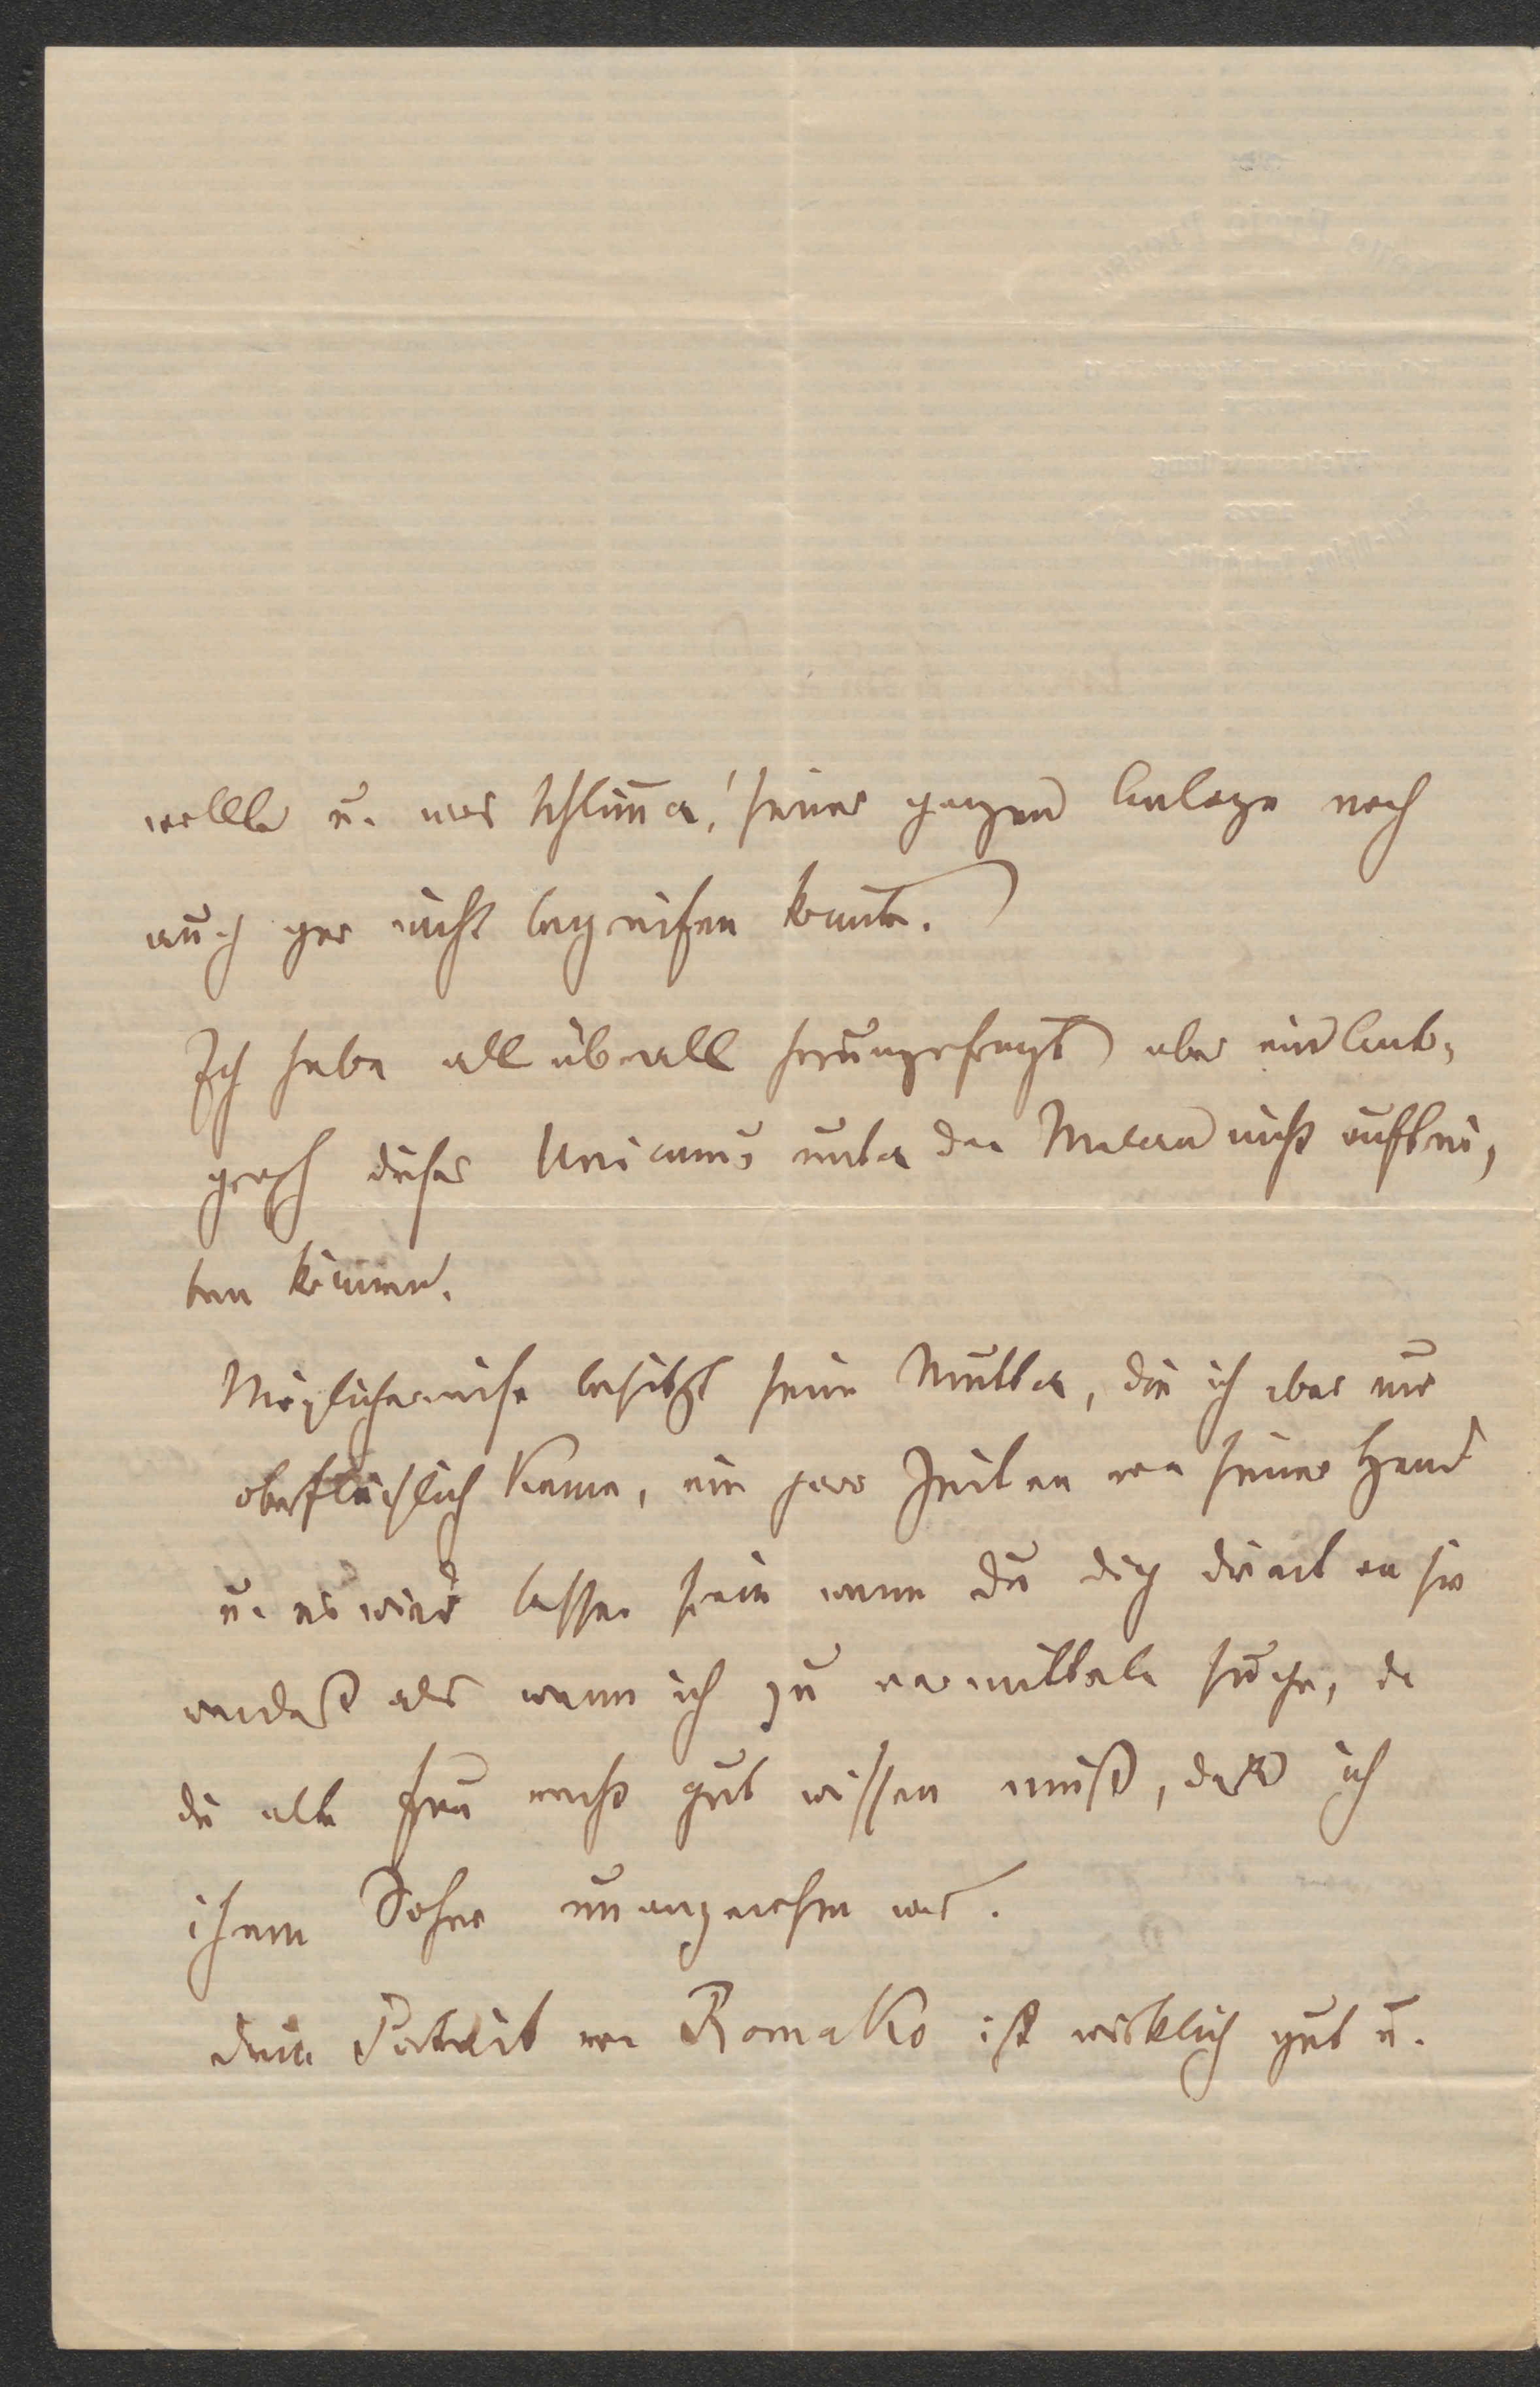 wollte u. was schlimmer, seiner ganzen Anlage nach
auch gar nicht begreifen konnte.
Ich habe all überall herumgefragt aber ein Auto-
graph dieses Unicums unter den Malern nicht auftrei-
ben können.
Möglicherweise besitzt seine Mutter, die ich aber nur
oberflächlich kenne, ein paar Zeilen von seiner Hand
u. es wird besser sein wenn du dich direct an sie
wendest als wenn ich zu vermitteln suche, da
die alte Frau recht gut wissen muß, daß ich
ihrem Sohne unangenehm war.
Dein Portrait von Romako ist wirklich gut u.